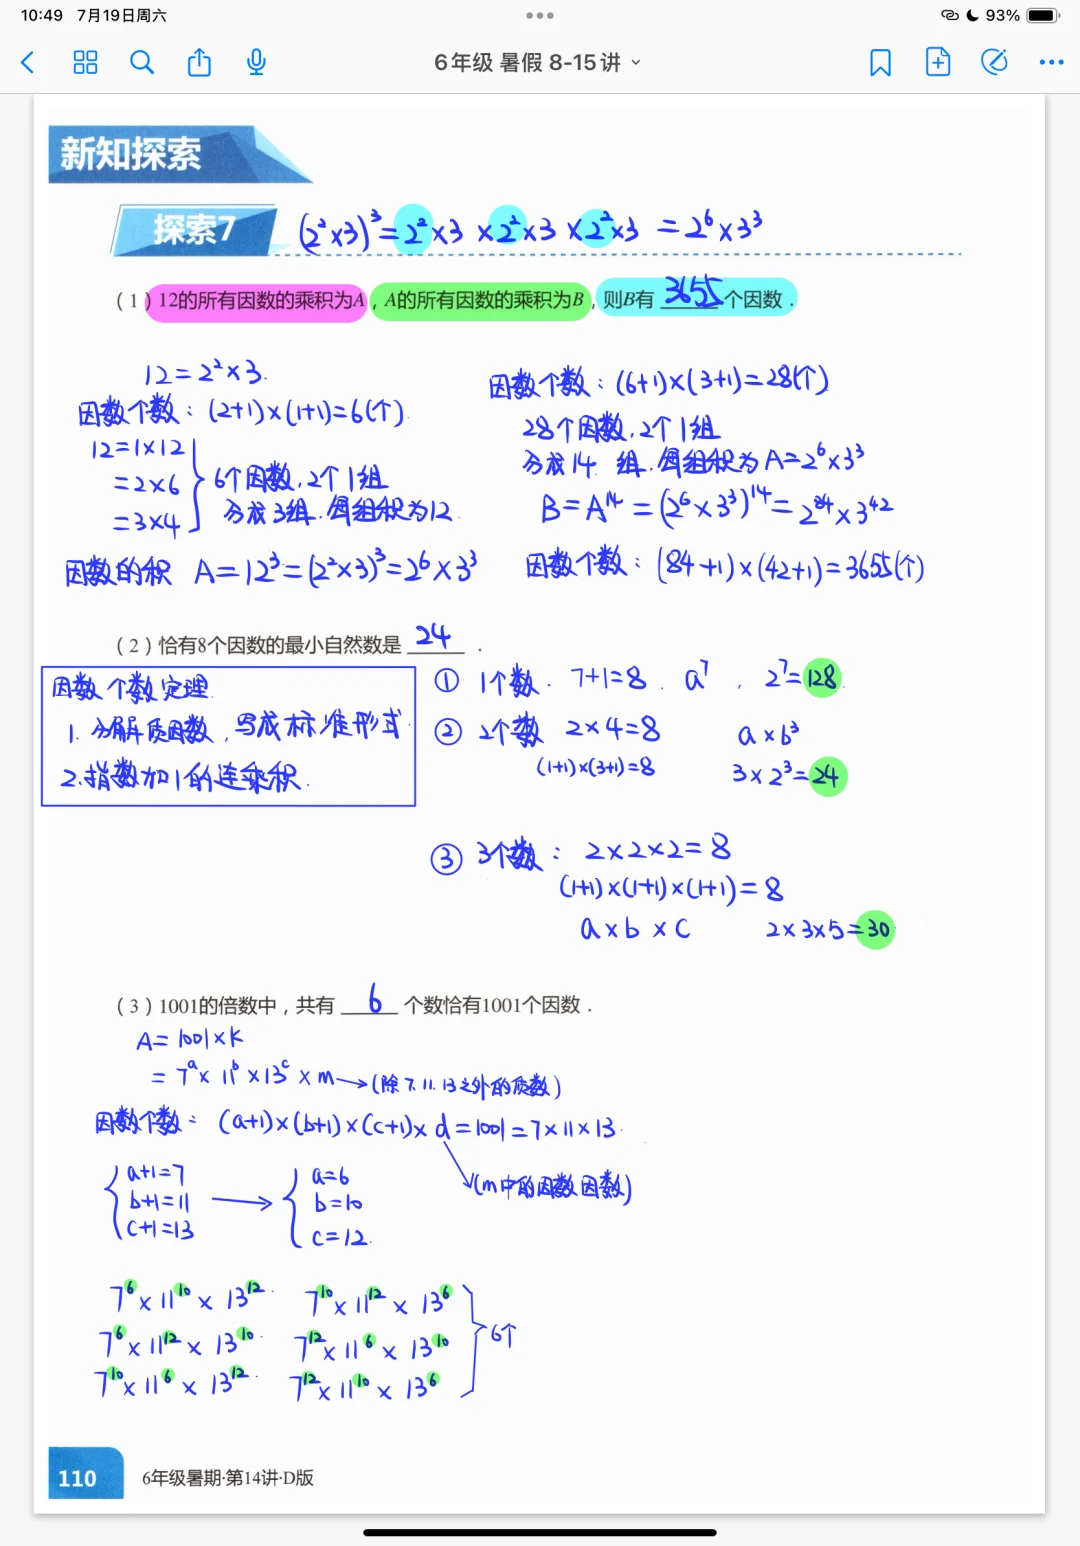 10:49 7月19日周六
93%
6年级 暑假 8-15讲
新知探索
探索7
(2²×3)³=2²×3×2²×3×2²×3 =2⁶×3³
(1) 12的所有因数的乘积为A，A的所有因数的乘积为B，则B有 3655 个因数．
12=2²×3.
因数个数：(2+1)×(1+1)=6(个).
12=1×12
=2×6
=3×4
6个因数,2个1组
分成3组.每组积为12.
因数的积 A=12³=(2²×3)³=2⁶×3³
因数个数：(6+1)×(3+1)=28(个)
28个因数.2个1组
分成14组.每组积为A=2⁶×3³
B=A¹⁴=(2⁶×3³)¹⁴=2⁸⁴×3⁴²
因数个数：(84+1)×(42+1)=3655(个)
(2) 恰有8个因数的最小自然数是 24 ．
因数个数定理.
1. 分解质因数，写成标准形式.
2.指数加1的连乘积.
① 1个数. 7+1=8. a⁷. 2⁷=128.
② 2个数 2×4=8 a×b³
(1+1)×(3+1)=8 3×2³=24
③ 3个数：2×2×2=8
(1+1)×(1+1)×(1+1)=8
a×b×c 2×3×5=30
(3) 1001的倍数中，共有 6 个数恰有1001个因数．
A=1001×k
=7ᵃ×11ᵇ×13ᶜ×m→(除7.11.13之外的质数)
因数个数：(a+1)×(b+1)×(c+1)×d=1001=7×11×13.
(m中的因数因数)
a+1=7
b+1=11
c+1=13
a=6
b=10
c=12.
7⁶×11¹⁰×13¹². 7¹⁰×11¹²×13⁶
7⁶×11¹²×13¹⁰. 7¹²×11⁶×13¹⁰
7¹⁰×11⁶×13¹². 7¹²×11¹⁰×13⁶
6个
110 6年级暑期·第14讲·D版